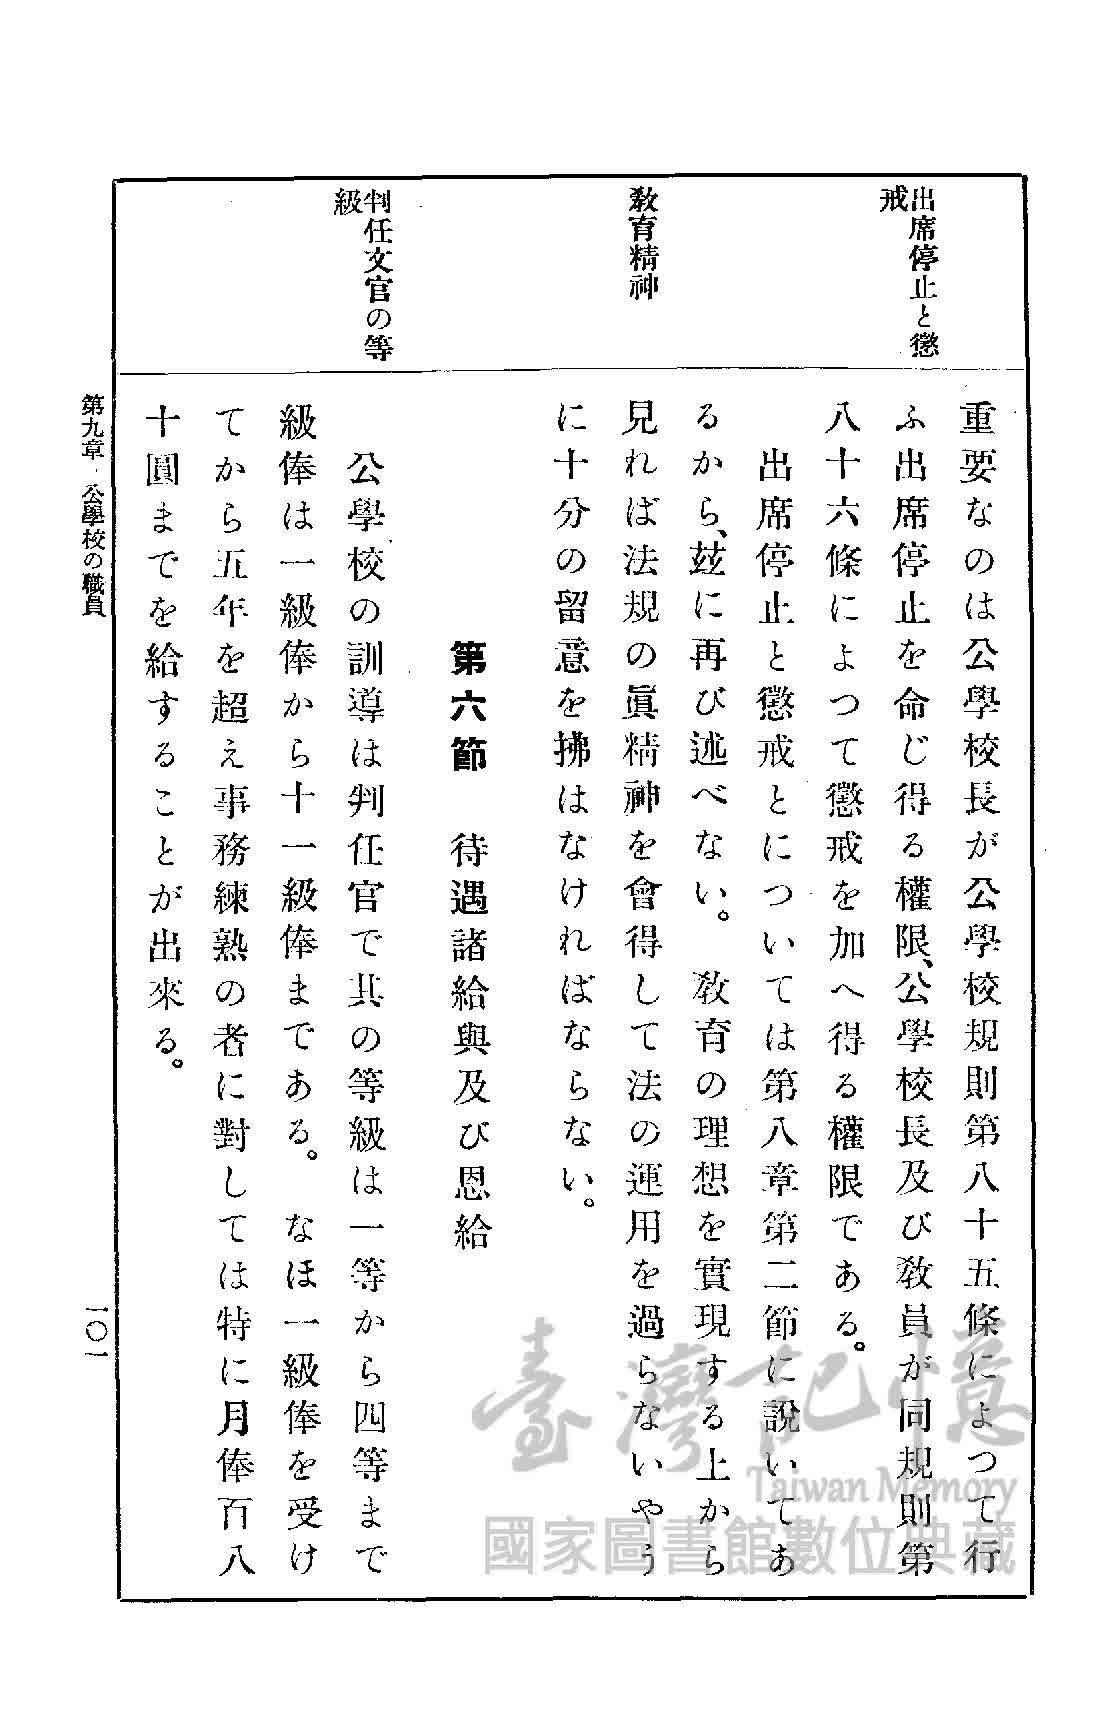 出席停止と懲
戒
教育精神
判任文官の等
級
重要なのは公學校長が公學校規則第八十五條によつて行
ふ出席停止を命じ得る權限、公學校長及び教員が同規則第
八十六條によつて懲戒を加へ得る權限である。
出席停止と懲戒とについては第八章第二節に說いてあ
るから、玆に再び述べない。　教育の理想を實現する上から
見れば法規の眞精神を會得して法の運用を過らないやう
に十分の留意を拂はなければならない。
第六節　待遇諸給與及び恩給
公學校の訓導は判任官で其の等級は一等から四等まで
級俸は一級俸から十一級俸まである。　なほ一級俸を受け
てから五年を超え事務練熟の者に對しては特に月俸百八
十圓までを給することが出來る。
第九章　公學校の職員
一〇一
臺灣記憶
Taiwan Memory
國家圖書館數位典藏